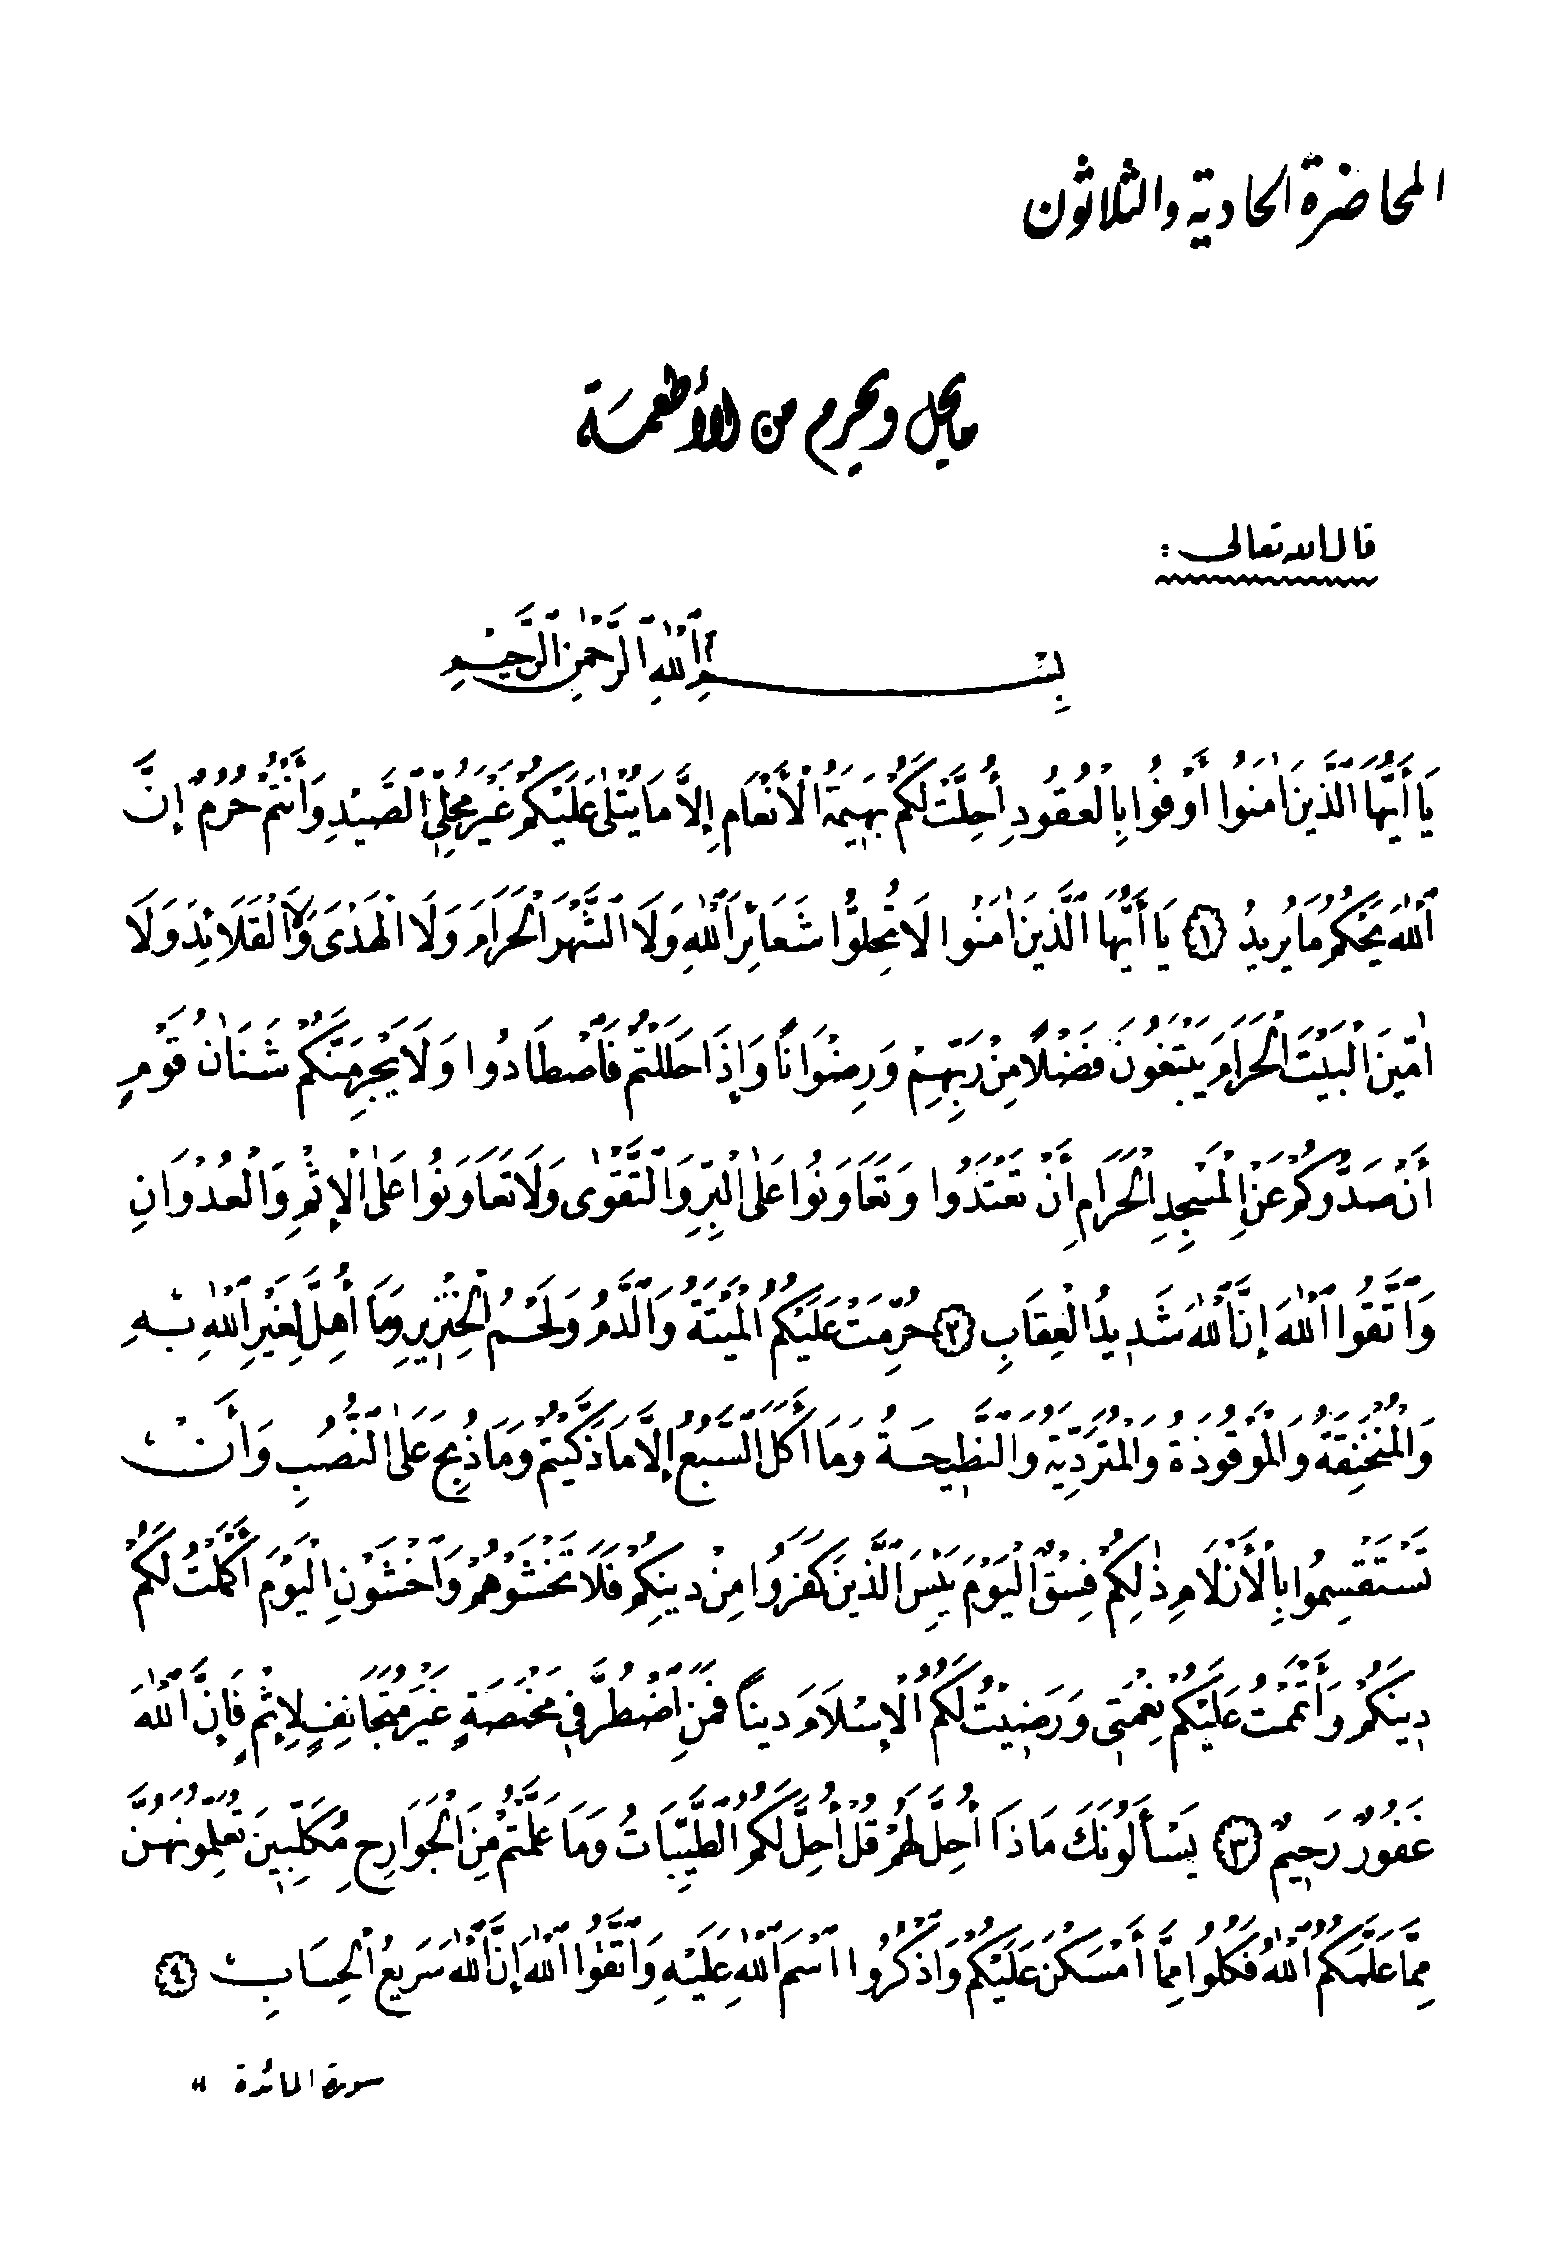 المحاضرة الحادية والثلاثون
ما يحل ويحرم من الأطعمة
قال الله تعالى :
بِسْمِ ٱللَّهِ ٱلرَّحْمَٰنِ ٱلرَّحِيمِ
يَا أَيُّهَا ٱلَّذِينَ اٰمَنُوا أَوْفُوا بِالْعُقُودِ أُحِلَّتْ لَكُمْ بَهِيمَةُ الْأَنْعَامِ إِلَّا مَا يُتْلَىٰ عَلَيْكُمْ غَيْرَ مُحِلِّي ٱلصَّيْدِ وَأَنْتُمْ حُرُمٌ إِنَّ
ٱللَّهَ يَحْكُمُ مَا يُرِيدُ ﴿١﴾ يَا أَيُّهَا ٱلَّذِينَ اٰمَنُوا لَا تُحِلُّوا شَعَائِرَ ٱللَّهِ وَلَا ٱلشَّهْرَ الْحَرَامَ وَلَا الْهَدْىَ وَلَا الْقَلَائِدَ وَلَا
اٰمِّينَ الْبَيْتَ الْحَرَامَ يَبْتَغُونَ فَضْلًا مِنْ رَبِّهِمْ وَرِضْوَانًا وَإِذَا حَلَلْتُمْ فَٱصْطَادُوا وَلَا يَجْرِمَنَّكُمْ شَنَاٰنُ قَوْمٍ
أَنْ صَدُّوكُمْ عَنِ الْمَسْجِدِ الْحَرَامِ أَنْ تَعْتَدُوا وَتَعَاوَنُوا عَلَى الْبِرِّ وَٱلتَّقْوَىٰ وَلَا تَعَاوَنُوا عَلَى الْإِثْمِ وَالْعُدْوَانِ
وَٱتَّقُوا ٱللَّهَ إِنَّ ٱللَّهَ شَدِيدُ الْعِقَابِ ﴿٢﴾ حُرِّمَتْ عَلَيْكُمُ الْمَيْتَةُ وَٱلدَّمُ وَلَحْمُ الْخِنْزِيرِ وَمَا أُهِلَّ لِغَيْرِ ٱللَّهِ بِهِ
وَالْمُنْخَنِقَةُ وَالْمَوْقُوذَةُ وَالْمُتَرَدِّيَةُ وَٱلنَّطِيحَةُ وَمَا أَكَلَ ٱلسَّبُعُ إِلَّا مَا ذَكَّيْتُمْ وَمَا ذُبِحَ عَلَى ٱلنُّصُبِ وَأَنْ
تَسْتَقْسِمُوا بِالْأَزْلَامِ ذَٰلِكُمْ فِسْقٌ الْيَوْمَ يَئِسَ ٱلَّذِينَ كَفَرُوا مِنْ دِينِكُمْ فَلَا تَخْشَوْهُمْ وَٱخْشَوْنِ الْيَوْمَ أَكْمَلْتُ لَكُمْ
دِينَكُمْ وَأَتْمَمْتُ عَلَيْكُمْ نِعْمَتِي وَرَضِيتُ لَكُمُ الْإِسْلَامَ دِينًا فَمَنِ ٱضْطُرَّ فِي مَخْمَصَةٍ غَيْرَ مُتَجَانِفٍ لِإِثْمٍ فَإِنَّ ٱللَّهَ
غَفُورٌ رَحِيمٌ ﴿٣﴾ يَسْأَلُونَكَ مَاذَا أُحِلَّ لَهُمْ قُلْ أُحِلَّ لَكُمُ ٱلطَّيِّبَاتُ وَمَا عَلَّمْتُمْ مِنَ الْجَوَارِحِ مُكَلِّبِينَ تُعَلِّمُونَهُنَّ
مِمَّا عَلَّمَكُمُ ٱللَّهُ فَكُلُوا مِمَّا أَمْسَكْنَ عَلَيْكُمْ وَٱذْكُرُوا ٱسْمَ ٱللَّهِ عَلَيْهِ وَٱتَّقُوا ٱللَّهَ إِنَّ ٱللَّهَ سَرِيعُ الْحِسَابِ ﴿٤﴾
سورة المائدة "